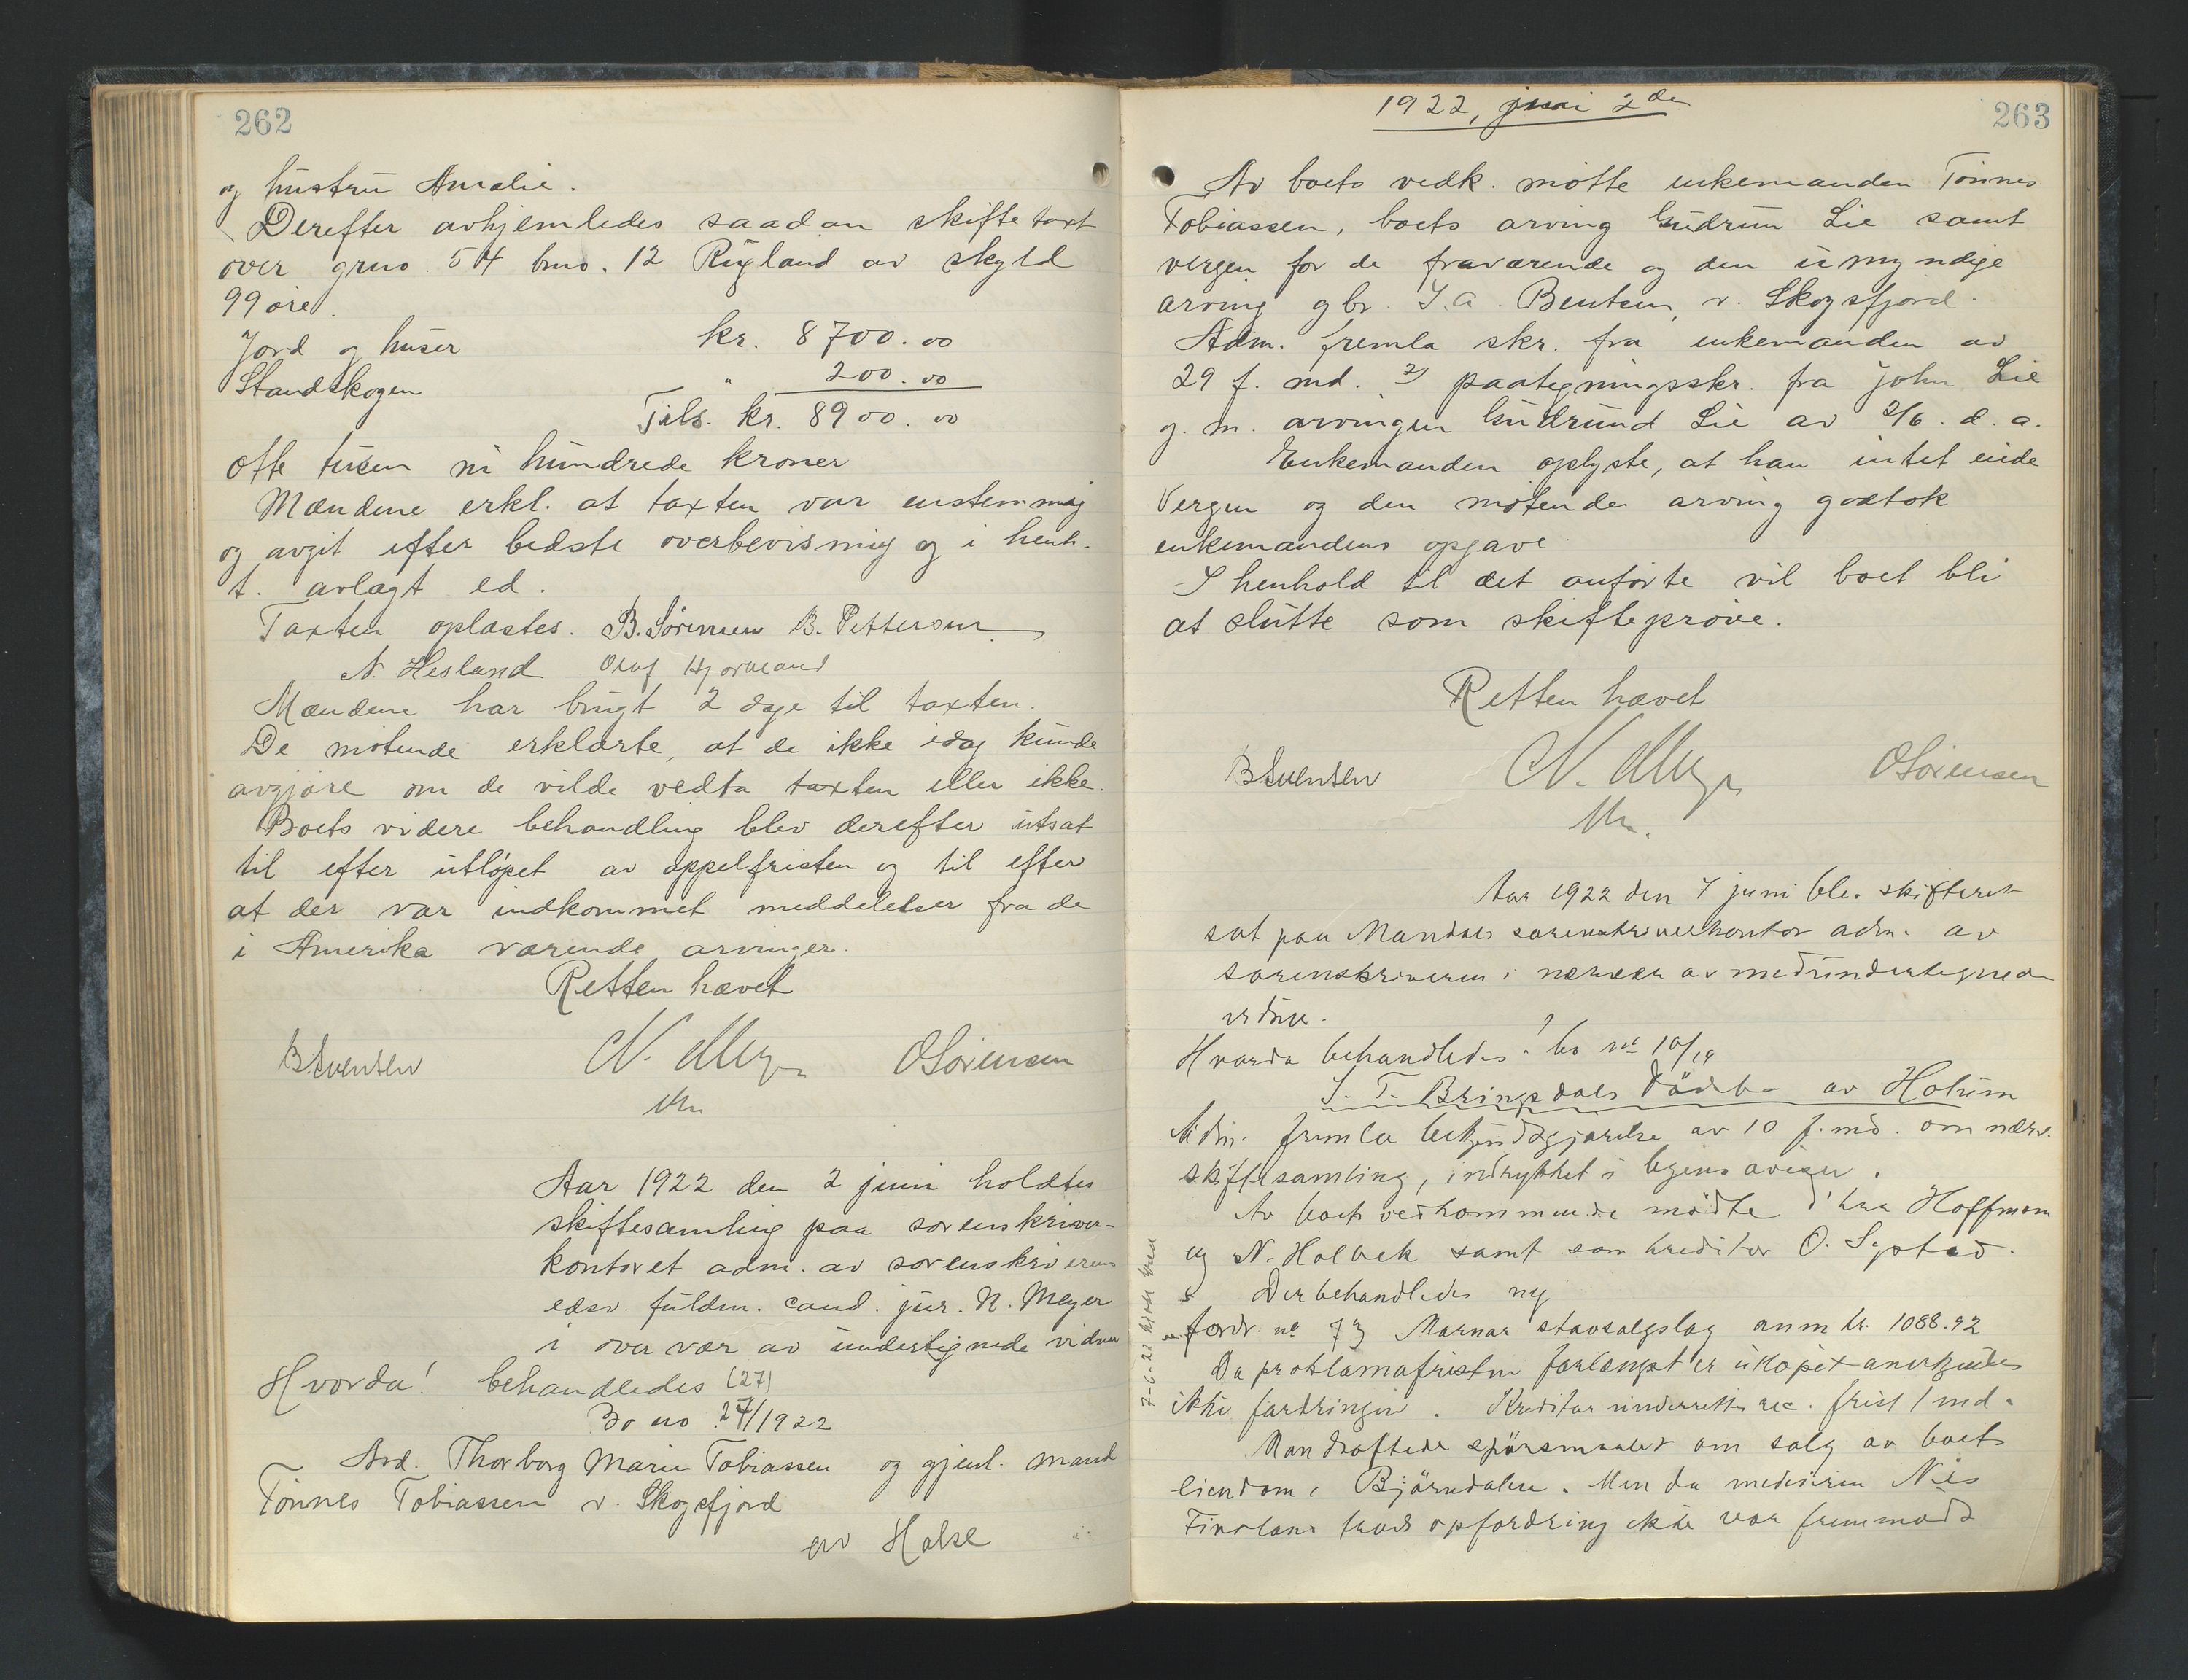 262
og hustru Amalie.
Derefter avhjemledes saadan skiftetaxt
over grno. 54 brno. 12 Rugland av skyld
99 øre.
Jord og huser kr. 8700.00
Standskogen " 200.00
Tils. kr. 8900.00
Otte tusen ni hundrede kroner
Mændene erkl. at taxten var enstemmig
og avgit efter bedste overbevisning og i henh.
t. avlagt ed.
Taxten oplæstes. B. Sørensen B. Petterson
N. Hesland Oluf Hjorteland
Mændene har brugt 2 dage til taxten.
De møtende erklærte, at de ikke idag kunde
avgjøre om de vilde vedta taxten eller ikke.
Boets videre behandling blev derefter utsat
til efter utløpet av appelfristen og til efter
at der var indkommet meddelelser fra de
i Amerika værende arvinger.
Retten hævet
B Svensen N. Meyer O Sørensen
Aar 1922 den 2 juni holdtes
skiftesamling paa sorenskriver-
kontoret adm. av sorenskriverens
edsv. fuldm. cand. jur. N. Meyer
i overvær av undertegnede vidner
Hvorda! behandledes (27)
Bo no 27/1922
Avd. Thorborg Marie Tobiassen og gjenl. mand
Tønnes Tobiassen v. Skogsfjord
av Halse
1922, juni 2de
263
Av boets vedk. møtte enkemanden Tønnes
Tobiassen, boets arving Gudrun Lie samt
vergen for de fraværende og den umyndige
arving gbr. T. A. Bentsen, v. Skogsfjord.
Adm. fremla skr. fra enkemanden av
29 f. md. 2) paategningsskr. fra John Lie
g. m. arvingen Gudrund Lie av 2/6. d. a.
Enkemanden oplyste, at han intet eide
Vergen og den møtende arving godtok
enkemandens opgave
I henhold til det anførte vil boet bli
at slutte som skifteprøve.
Retten hævet
B Svensen N. Meyer O Sørensen
Aar 1922 den 7 juni ble. skifteret
sat paa Mandals sorenskriverkontor adm. av
sorenskriveren i nærvær av medundertegnede
vidner.
Hvorda behandledes! bo no 10/19
S. T. Bringsdals Dödsbo av Holum
Adm. fremla bekjendtgjørelse av 10 f. md. om nærv.
skiftesamling, indrykket i byens aviser.
Av boets vedkommende mødte d'hrr Hoffmann
og N. Holbek samt som kreditor O. Systad.
Der behandledes ny
fordr. no 73 Marnar stavsalgslag anm kr. 1088.92
Da proklamafristen forlængst er utløpet anerkjendtes
ikke fordringen. Kreditor underrettes rec. frist 1 md.
Man drøftede spörsmaalet om salg av boets
eiendom i Björndalen. Men da medeieren Nils
trods opfordring ikke var fremmødt
7-6-22